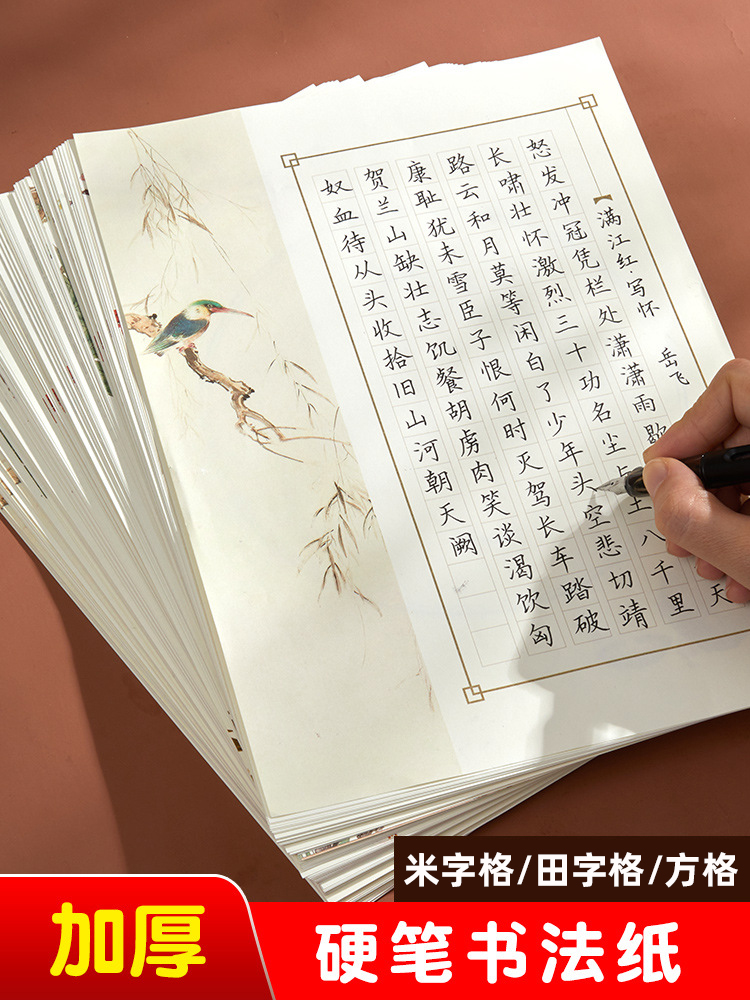 【满江红·写怀 岳飞
怒发冲冠凭栏处潇潇雨歇天
长啸壮怀激烈三十功名尘土八千里
路云和月莫等闲白了少年头空悲切靖
康耻犹未雪臣子恨何时灭驾长车踏破
贺兰山缺壮志饥餐胡虏肉笑谈渴饮匈
奴血待从头收拾旧山河朝天阙
米字格/田字格/方格
加厚
硬笔书法纸